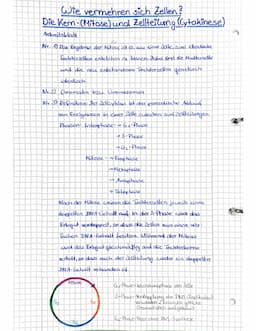 Wie vermehren sich Zellen?
Die Kern-(Mitose) und Zellteilung (Cytokinese)
Arbeitsblatt
Nr. 1) Das Ergebnis der Mitose ist es, aus einer Zelle zwei identische
Tochterzellen entstehen zu lassen. Dabei sind die Mutterzelle
und die neu entstandenen Tochterzellen genetisch
identisch.
Nr. 2) Chromatin bzw. Chromosomen
Nr. 3) Definition: Der Zellzyklus ist der periodische Ablauf
von Ereignissen in einer Zelle zwischen zwei Zellteilungen.
Phasen: Interphase → G₁-Phase
→ S-Phase
→ G₂-Phase
Mitose → Prophase
→ Metaphase
→ Anaphase
→ Telophase
Nach der Mitose weisen die Tochterzellen jeweils einen
doppelten DNA-Gehalt auf. In der S-Phase wird das
Erbgut verdoppelt, so dass die Zellen nun einen vier-
fachen DNA-Gehalt besitzen. Während der Mitose
wird das Erbgut gleichmäßig auf die Tochterkerne
verteilt, so dass nach der Zellteilung wieder ein doppelter
DNA-Gehalt vorhanden ist.
Mitose
G₁
S
G₂
G₁-Phase: der Zelle
S-Phase: Verdopplung der DNA
G₂-Phase: Phase nach DNA Synthese